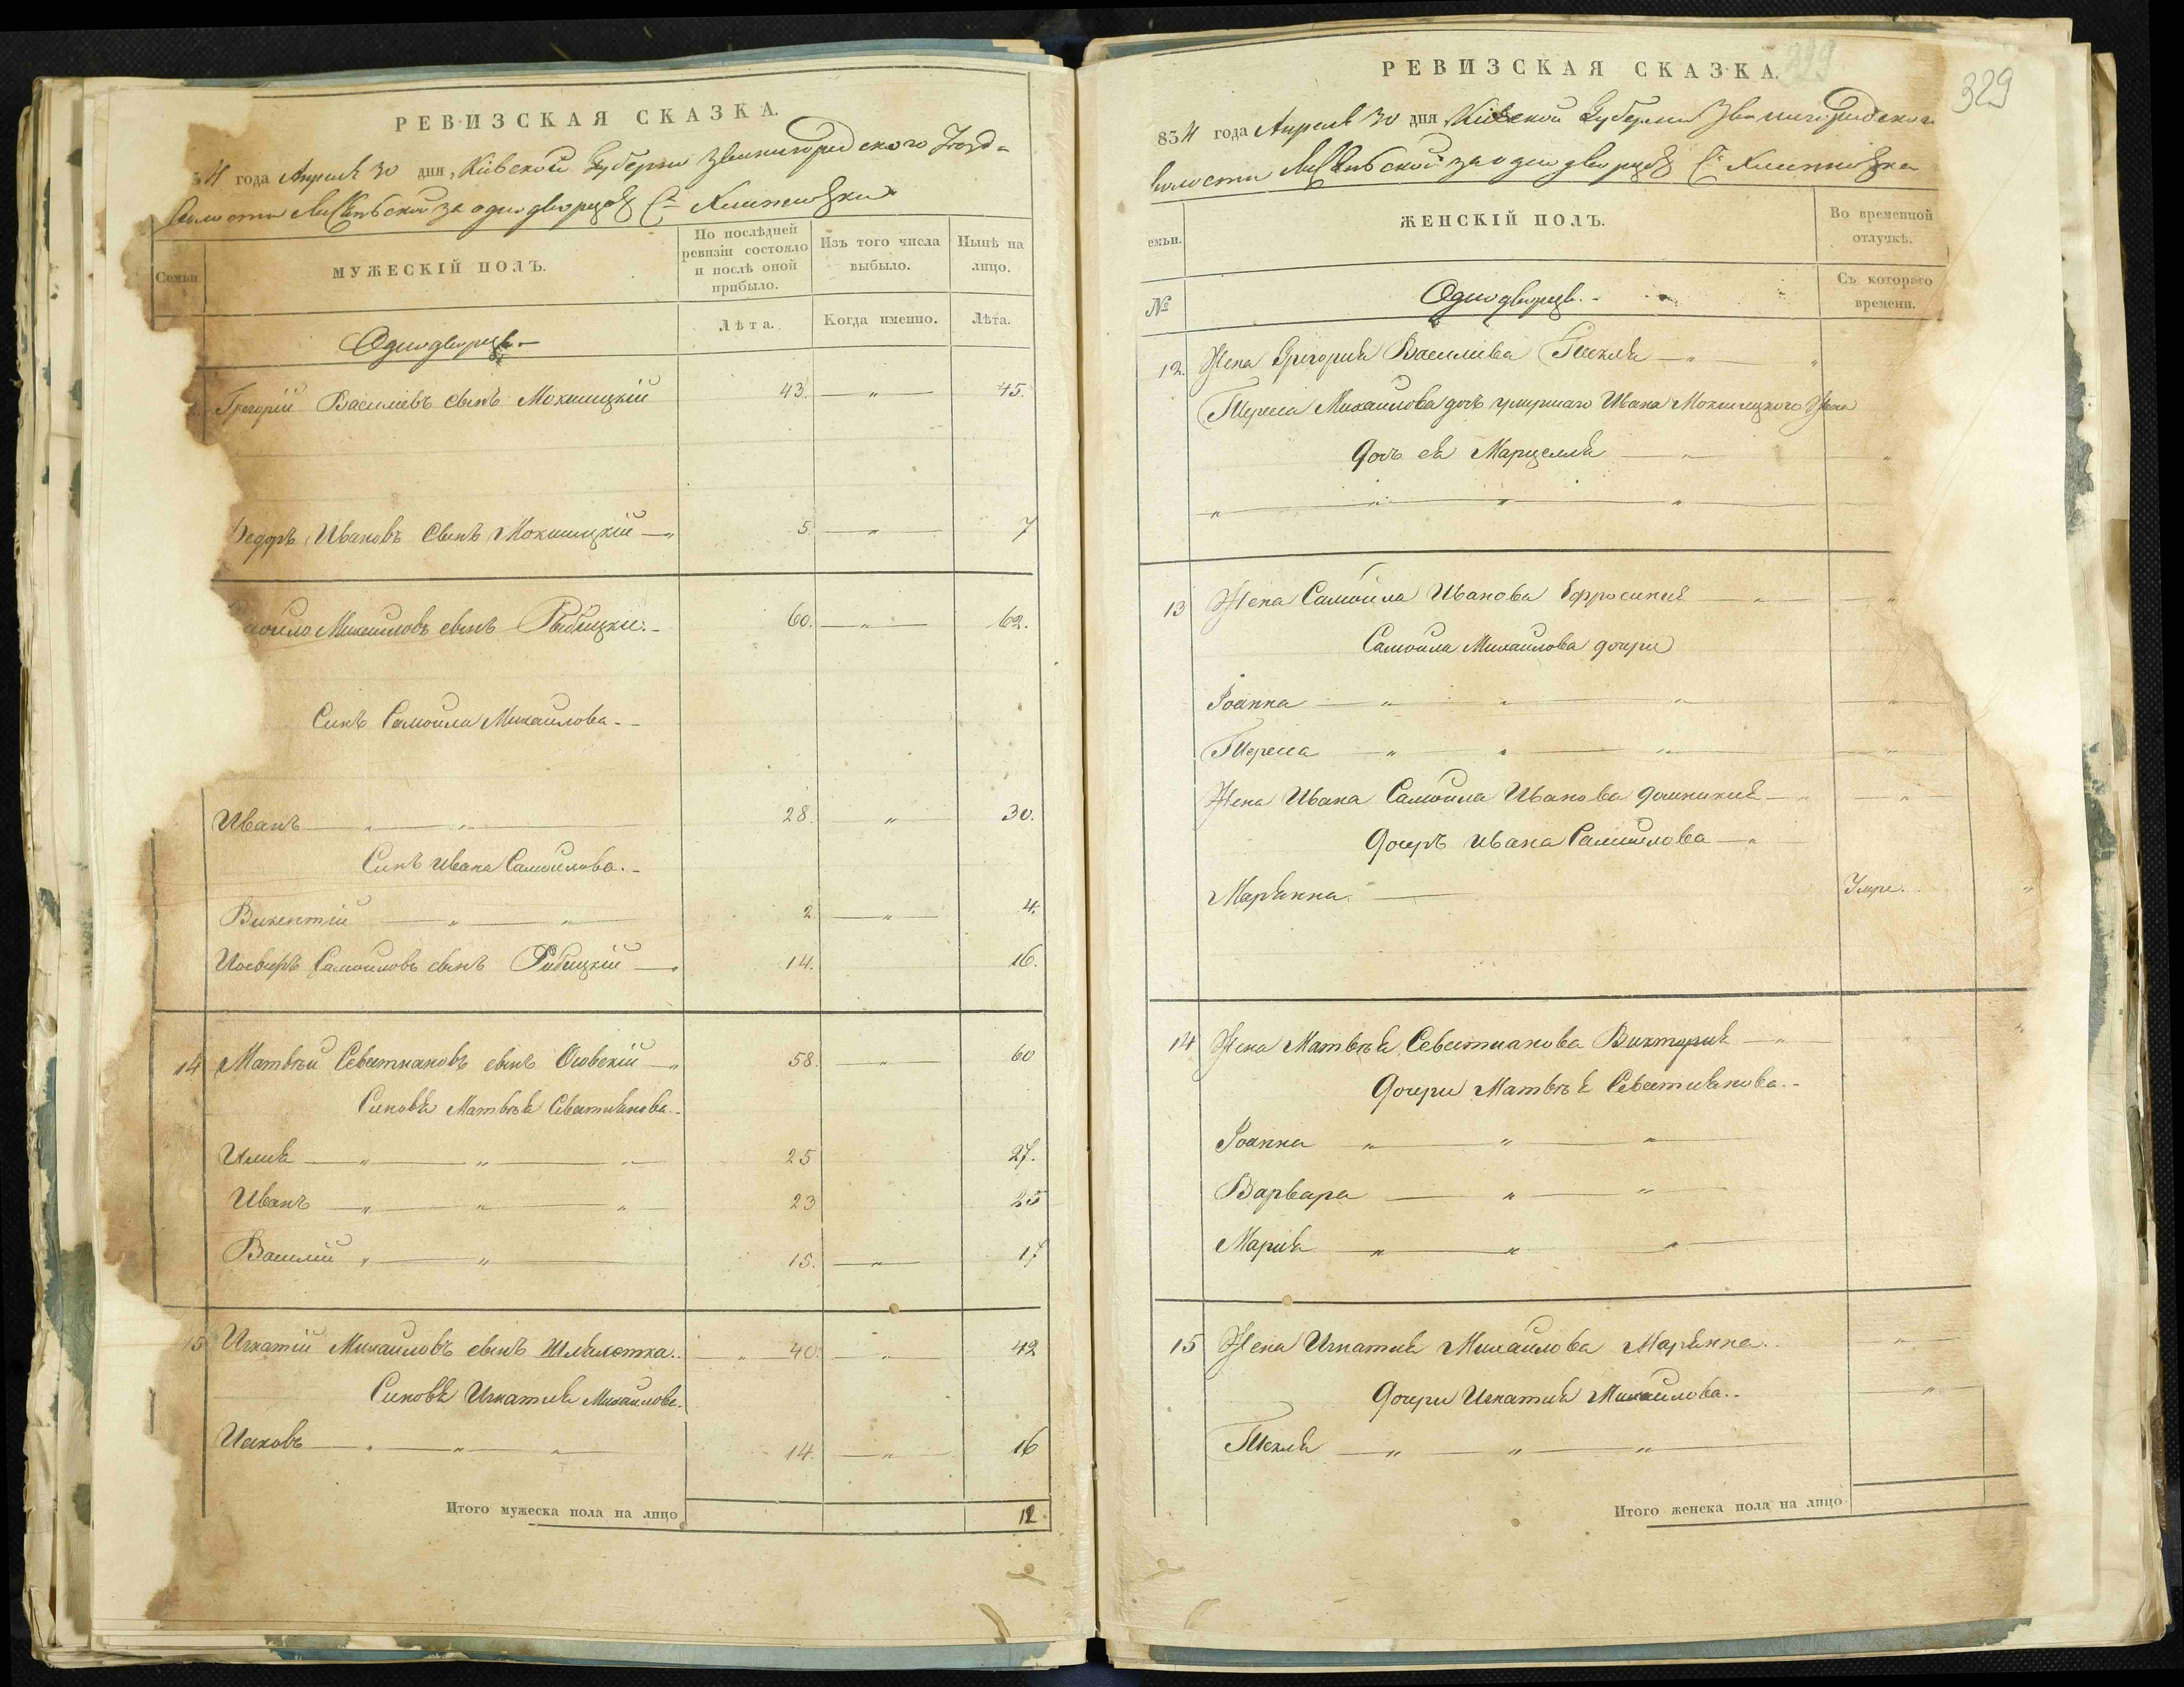 РЕВИЗСКАЯ СКАЗКА.
34 года Апреля 30 дня, Кіевской Губерніи Звенигородского Уезда
Волости за однодворцовъ С.
Семьи.
МУЖЕСКІЙ ПОЛЪ.
По послѣдней ревизіи состояло и послѣ оной прибыло.
Изъ того числа выбыло.
Нынѣ на лицо.
Лѣта.
Когда именно.
Лѣта.
Однодворцы.
Григорій Василіевъ сынъ Мокшицкій 43. 45.
Федоръ Ивановъ сынъ Мокшицкій 5. 7
мойло Михаиловъ сынъ Рибицкій. 60. 62.
Синъ Самойла Михаилова.
Иванъ 28. 30.
Синъ Ивана Самойлова.
Викентій 2. 4.
Іосифъ Самойловъ сынъ Рибицкій 14. 16.
14 Матвѣй Севастиановъ сынъ 58. 60
Синовя Матвѣя Севастиянова.
Илия 25 27.
Иванъ 23 25
Василій 15. 17
15 Игнатій Михаиловъ сынъ Шляхотка. 40. 42
Синовя Игнатия Михаилова.
Иаковъ 14. 16
Итого мужеска пола на лицо 12
329
РЕВИЗСКАЯ СКАЗКА.
834 года Апреля 30 дня Кіевской Губерніи Звенигородского
Волости за однодворцовъ С.
семьи.
ЖЕНСКІЙ ПОЛЪ.
Во временной отлучкѣ.
№
Однодворцы.
Съ которого времени.
12. Жена Григория Василиева Текля
Тереса Михаилова дочь умершаго Ивана Мокшицкого Жена
Дочь ея Марцелля
13 Жена Самойла Иванова Ефросиния
Самойла Михаилова дочери
Іоанна
Тереса
Жена Ивана Самойла Иванова Доминикия
Дочерь Ивана Самойлова
Марянна Умре.
14 Жена Матвѣя Севастианова Виктория
Дочери Матвѣя Севастиянова.
Іоанна
Варвара
Мария
15 Жена Игнатия Михаилова Марянна.
Дочери Игнатия Михаилова.
Текля
Итого женска пола на лицо